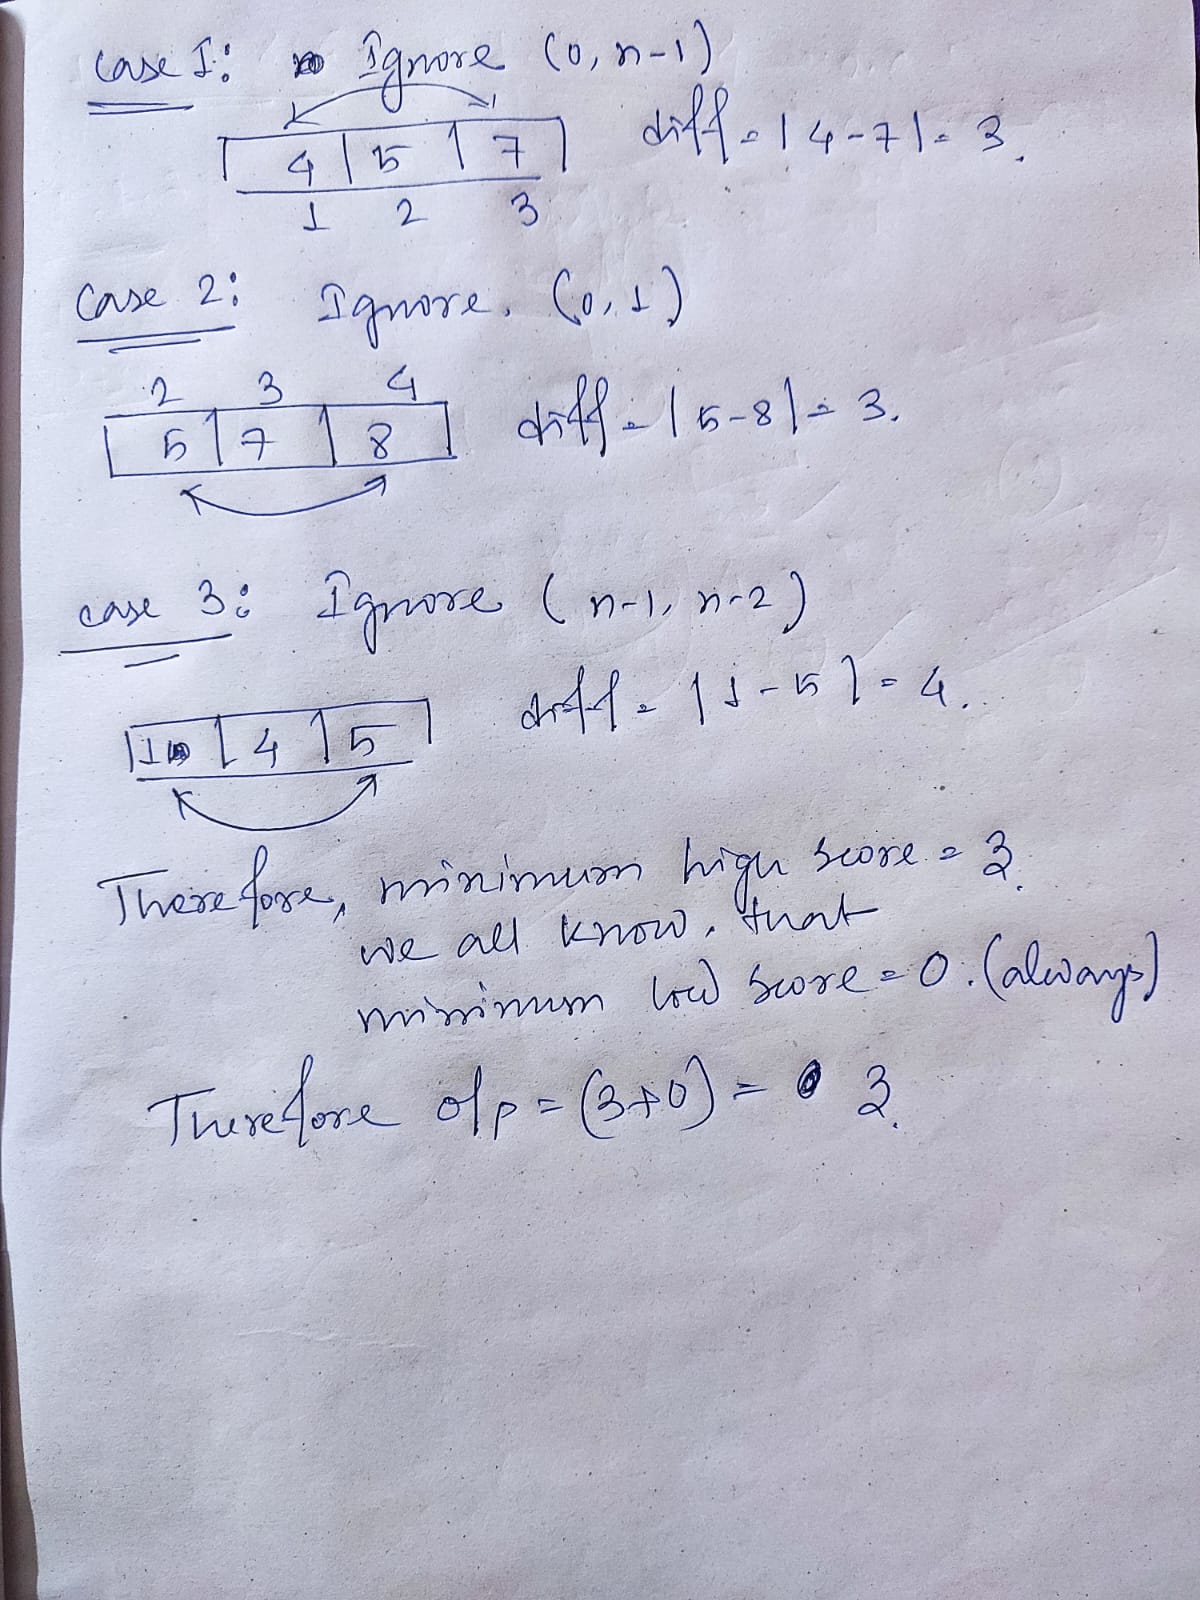 Case 1: Ignore (0, n-1)
4 | 5 | 7 diff = |4-7| = 3.
1 2 3
Case 2: Ignore. (0, 1)
2 3 4
5 | 7 | 8 diff = |5-8| = 3.
case 3: Ignore (n-1, n-2)
diff = |1-5| = 4.
1 | 4 | 5
Therefore, minimum high score = 3.
we all know, that
minimum low score = 0. (always)
Therefore o/p = (3+0) = 3.